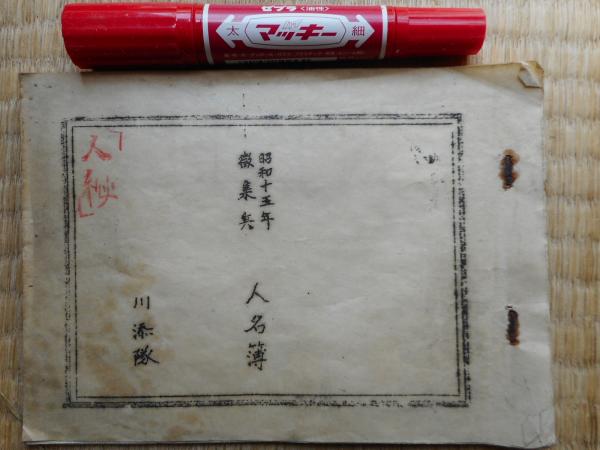 ゼブラ〈油性〉
太 マッキー 細
昭和十五年
徴集兵
人名簿
川添隊
人秘